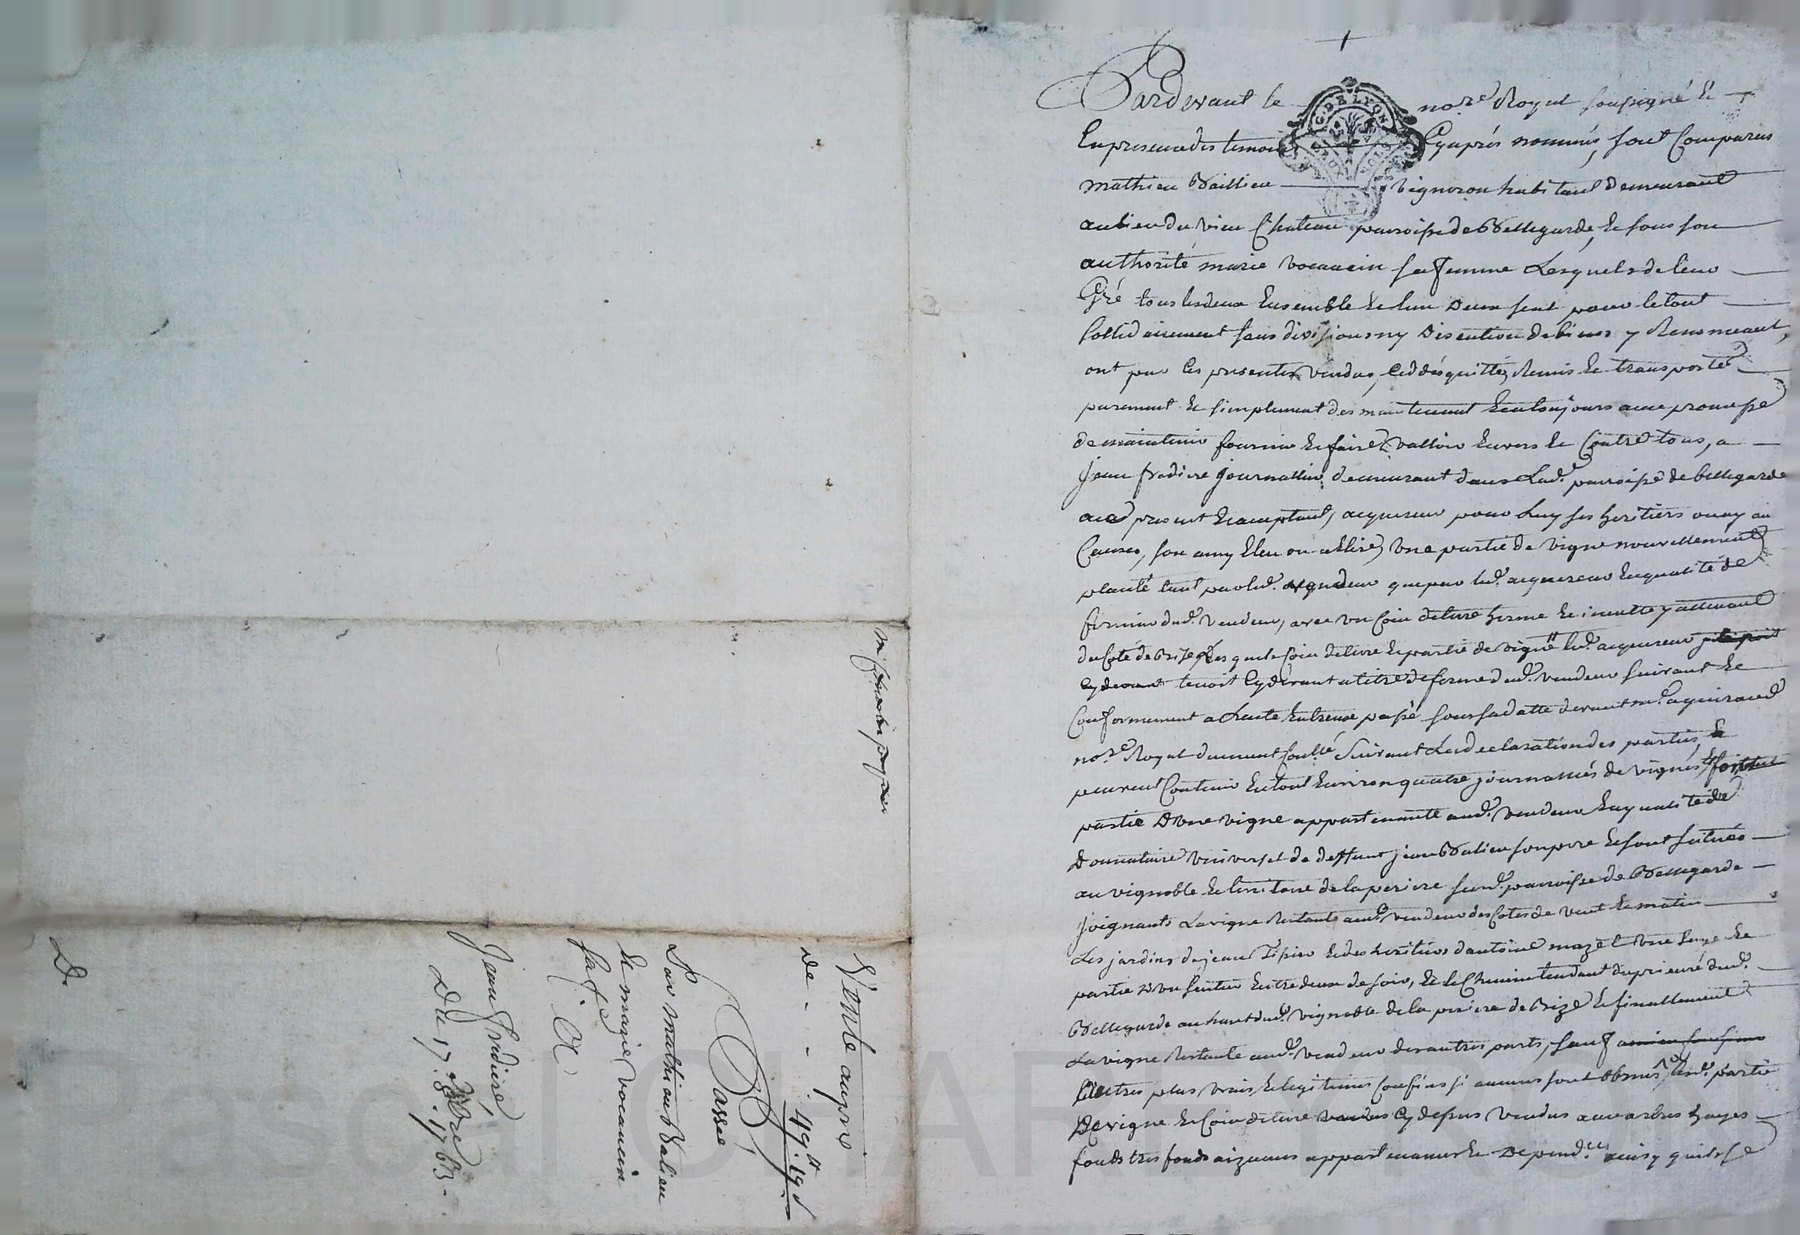 Pardevant le no.re Royal soussigné &
En presence des temoins Cyaprés nommés, sont Comparus
mathieu Ballieu vigneron habitant demeurant
au lieu du vieu Chateau parroisse de Bellegarde, & sous son
authorité marie vocancin sa femme Lesquels de leur
Gré tous lesdeux Ensemble & lun Deux seul pour le tout
sollidairement sans division ny Discution de biens y Renonceant,
ont par Ces presentes vendus, Ceddés quittés, Remis & transporté
purement & simplement dés maintenant & atoujours avec promesse
de maintenir fournir & faire valloir Envers & Contre tous, a
Jean fradiere Journallier, demeurant dans Lad.e parroisse de bellegarde
icy present & acceptant, acquereur pour Luy ses heritiers ou ay au
Causes, son amy Eleu ou a Elire, une partie de vigne nouvellement
planté tant par led. vendeur que par led. acquereur En qualité de
fermier dud. vendeur, avec un Coin de terre herme & inculte y attenant
du Coté de Bize, Lesquels Coin de terre & partie de vigne led. acquereur
Cy devant tenoit Cydevant a titre de ferme dud. vendeur suivant &
Conformement a Lacte Entreux passé sous sa datte devant m.e aguiraud
no.re Royal duement Con.llé suivant La declaration des parties,
peuvent Contenir En tout Environ quatre journallées de vignes,
partie D'une vigne appartenante aud. vendeur En qualité de
Donnataire universel de deffunt jean Balieu son pere & sont situées
au vignoble & territoire de la periere sur d. parroisse de Bellegarde
Joignants La vigne Restante aud. vendeur des Cotés de vent & matin
Les jardins de jean Tissier & des heritiers d'antoine mazet une haye &
partie D'un sentier Entredeux de soir, & Le Chemin tendant du prieuré dud.
Bellegarde au haut dud. vignoble de la periere de Bize & finallement
La vigne Restante aud. vendeur des autres parts, sauf
autres plus vrais & legitimes Confins si aucuns sont obmis, Lad. partie
De vigne & Coin de terre Cy dessus vendus avec arbres hayes
fonds tres fonds aizances appartenances & Depend.ces ainsy quil se
Vente au prix
De - - - 49.tt 19 d
Passé
Par mathieu Balieu
& marie vocancin
sa f.e
A
Jean fradiere
Du 17. 8bre 1763.
D.